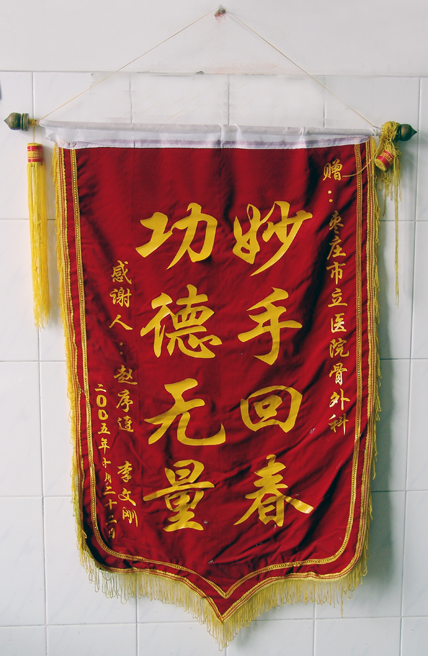 赠：枣庄市立医院骨外科
妙手回春
功德无量
感谢人：赵序道 李文刚
二〇〇五年十月二十二日